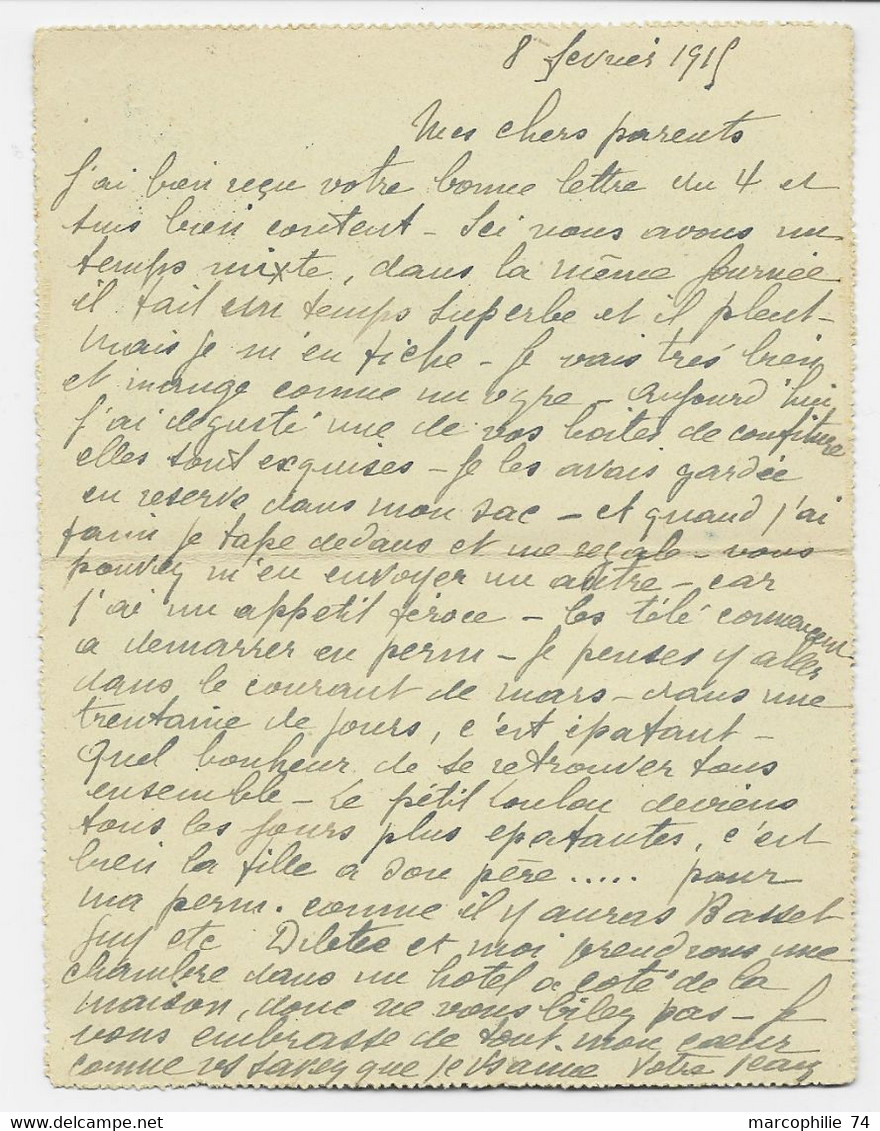 8 fevrier 1915
Mes chers parents
J'ai bien reçu votre bonne lettre du 4 et
suis bien content - Ici nous avons un
temps mixte, dans la même journée
il fait un temps superbe et il pleut -
Mais je m'en fiche - Je vais très bien
et mange comme un ogre - Aujourd'hui
j'ai degusté une de vos boites de confiture
elles sont exquises - Je les avais gardée
en reserve dans mon sac - et quand j'ai
faim je tape dedans et me regale - vous
pouvez m'en envoyer un autre - car
j'ai un appetit féroce - les télé commencent
a demarrer en perm - Je penses y aller
dans le courant de mars - dans une
trentaine de jours, c'est épatant -
Quel bonheur de se retrouver tous
ensemble - Le pétit Loulou deviens
tous les jours plus epatantes, c'est
bien la fille a son père ..... pour
ma perm. comme il y auras Basset
Guy etc et moi prendrons une
chambre dans un hotel a coté de la
maison, donc ne vous bilez pas - Je
vous embrasse de tout mon coeur
comme vs savez que je vs aime Votre Jean
www.delcampe.net
marcophilie 74